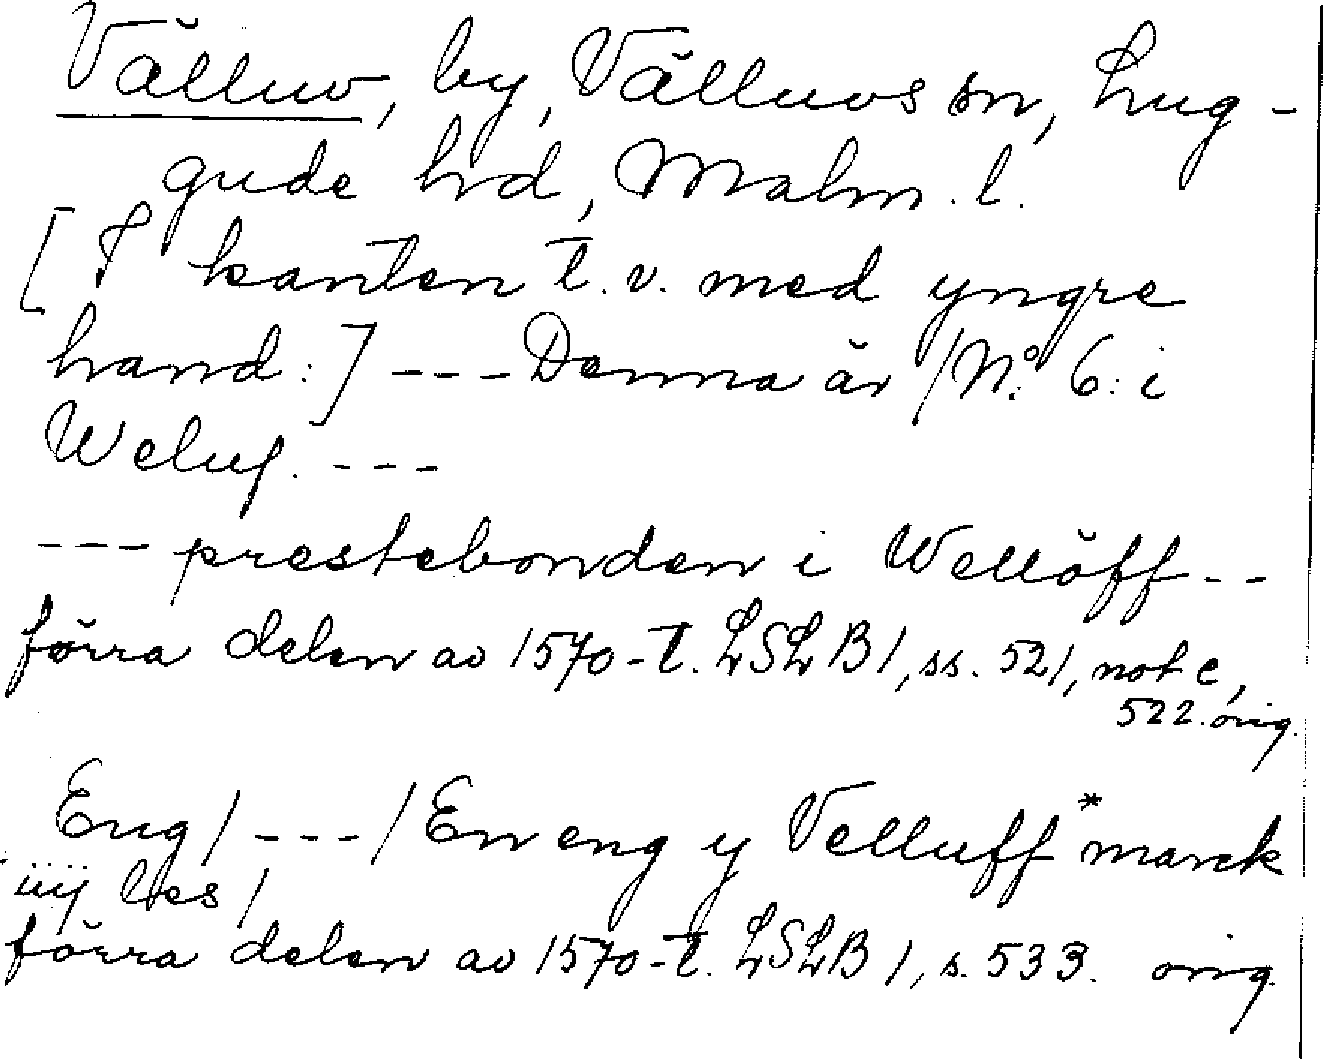 Välluv, by, Välluvs sn, Lug-
gude hrd, Malm. l.
[I kanten t. v. med yngre
hand:] --- Denna är /N:o 6: i
Weluf. ---
--- prestebonden i Wellöff --
förra delen av 1570-t. LSLB 1, ss. 521, not e,
522. orig.
Eng / --- / En eng y Velluff * marck
iiij les /
förra delen av 1570-t. LSLB 1, s. 533. orig.